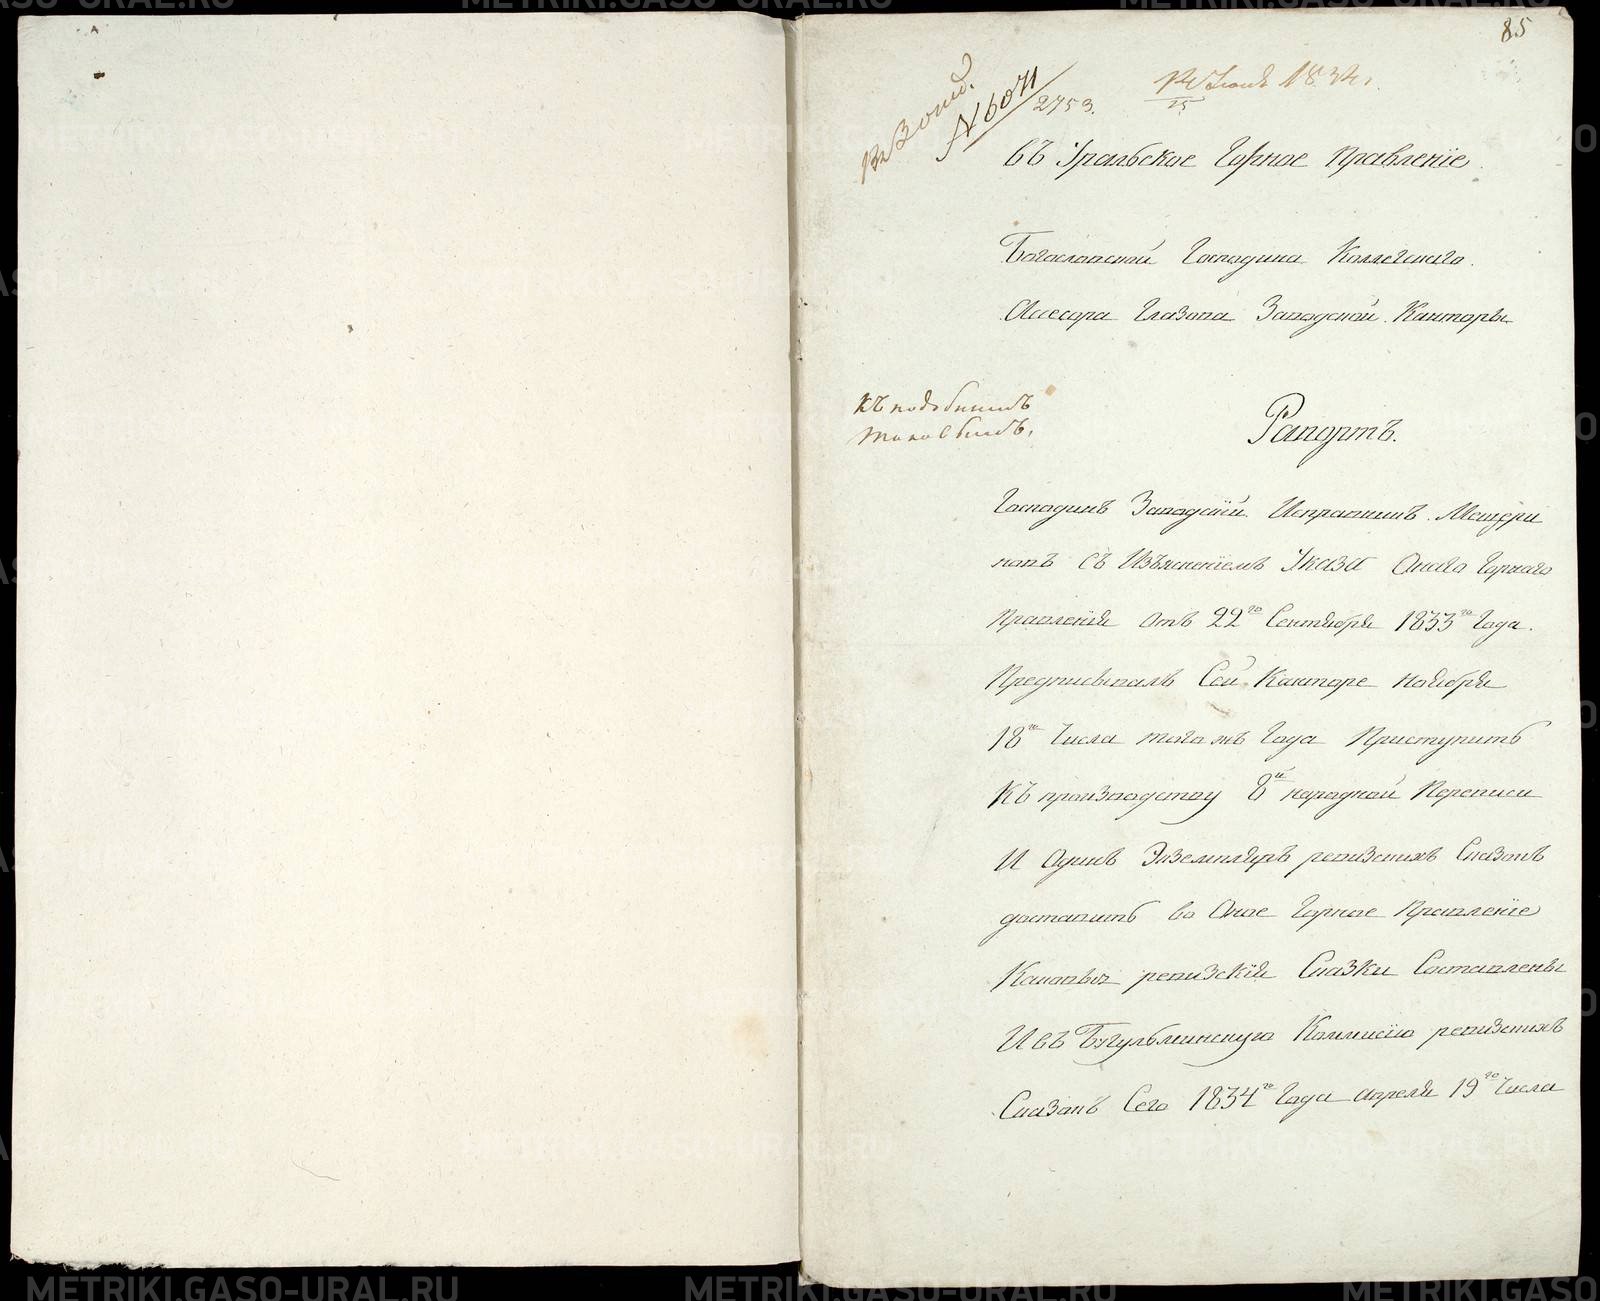 85
№ 6071
2753.
25 1834.
Въ Уральское Горное Правленіе
Богословской Господина Коллегскаго
Ассесора Глазова Заводской Канторы
Къ подобнымъ
таковымъ.
Рапортъ.
Господинъ Заводскій Исправникъ Мещери
новъ съ Изъясненіемъ Указа Онаго Горнаго
Правленія Отъ 22го Сентября 1833го Года.
Предписывалъ Сей Канторе Ноября
18го Числа тогожъ Года Приступить
Къ произведству 8й народной Переписи
И Одинъ Экземпляръ ревизскихъ Сказокъ
доставить во Оное Горное Правленіе
Каковыя ревизскія Сказки Составлены
И въ Бугульминскую Коммисію ревизскихъ
Сказокъ Сего 1834го Года апреля 19го Числа
METRIKI.GASO-URAL.RU